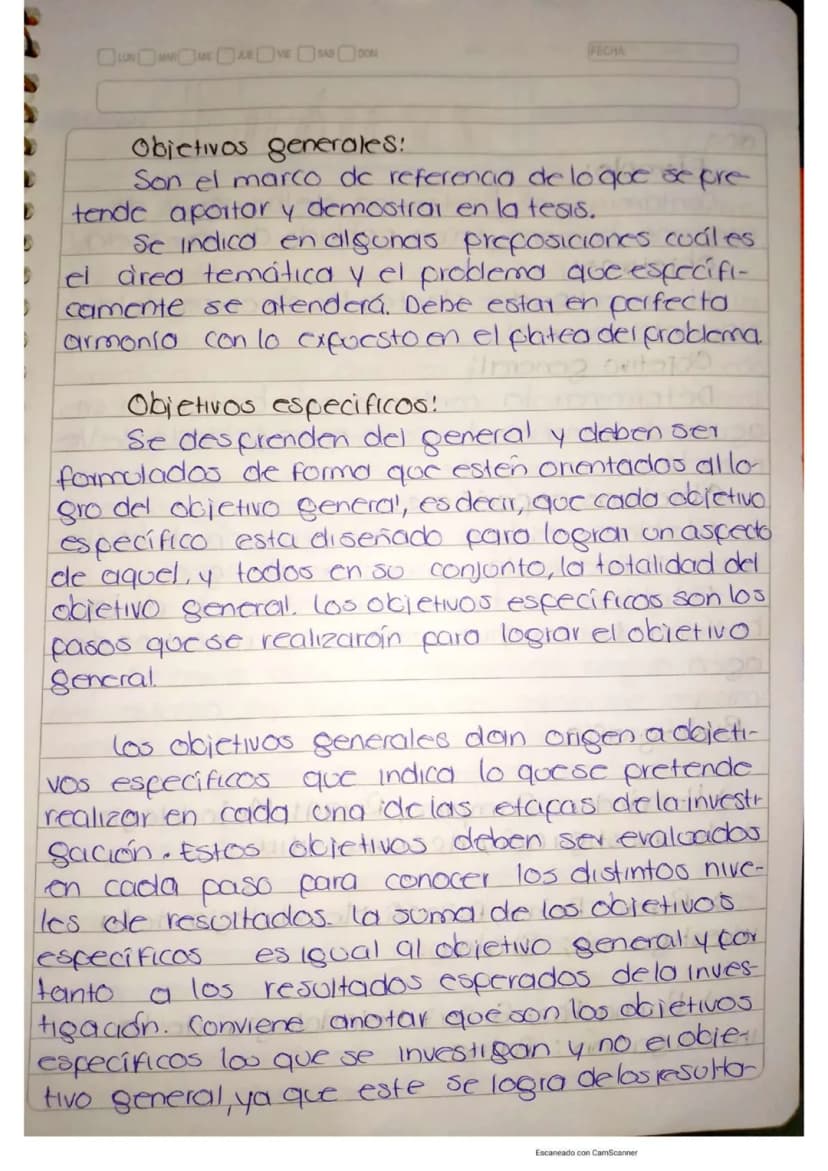 LUN MAR MIE JUE VIE SAB DOM
FECHA
Objetivos generales:
Son el marco de referencia de lo que se pre-
tende aportar y demostrar en la tesis.
Se indica en algunas preposiciones cuál es
el área temática y el problema que especifi-
camente se atenderá. Debe estar en perfecta
armonía con lo expuesto en el platea del problema.
Objetivos especificos:
Se desprenden del general y deben ser
formulados de forma que esten orientados al lo-
gro del objetivo general, es decir, que cada objetivo
específico esta diseñado para lograr un aspecto
de aquel, y todos en su conjunto, la totalidad del
objetivo general. Los objetivos específicos son los
pasos que se realizarán para lograr el objetivo
general.
Los objetivos generales dan origen a objeti-
vos específicos que indica lo que se pretende
realizar en cada una de las etapas de la investi-
gación. Estos objetivos deben ser evaluados
en cada paso para conocer los distintos nive-
les de resultados. La suma de los objetivos
específicos es igual al objetivo general y por
tanto a los resultados esperados de la inves-
tigación. Conviene anotar que son los objetivos
específicos los que se investigan y no el obje-
tivo general, ya que este se logra de los resulta-
Escaneado con CamScanner